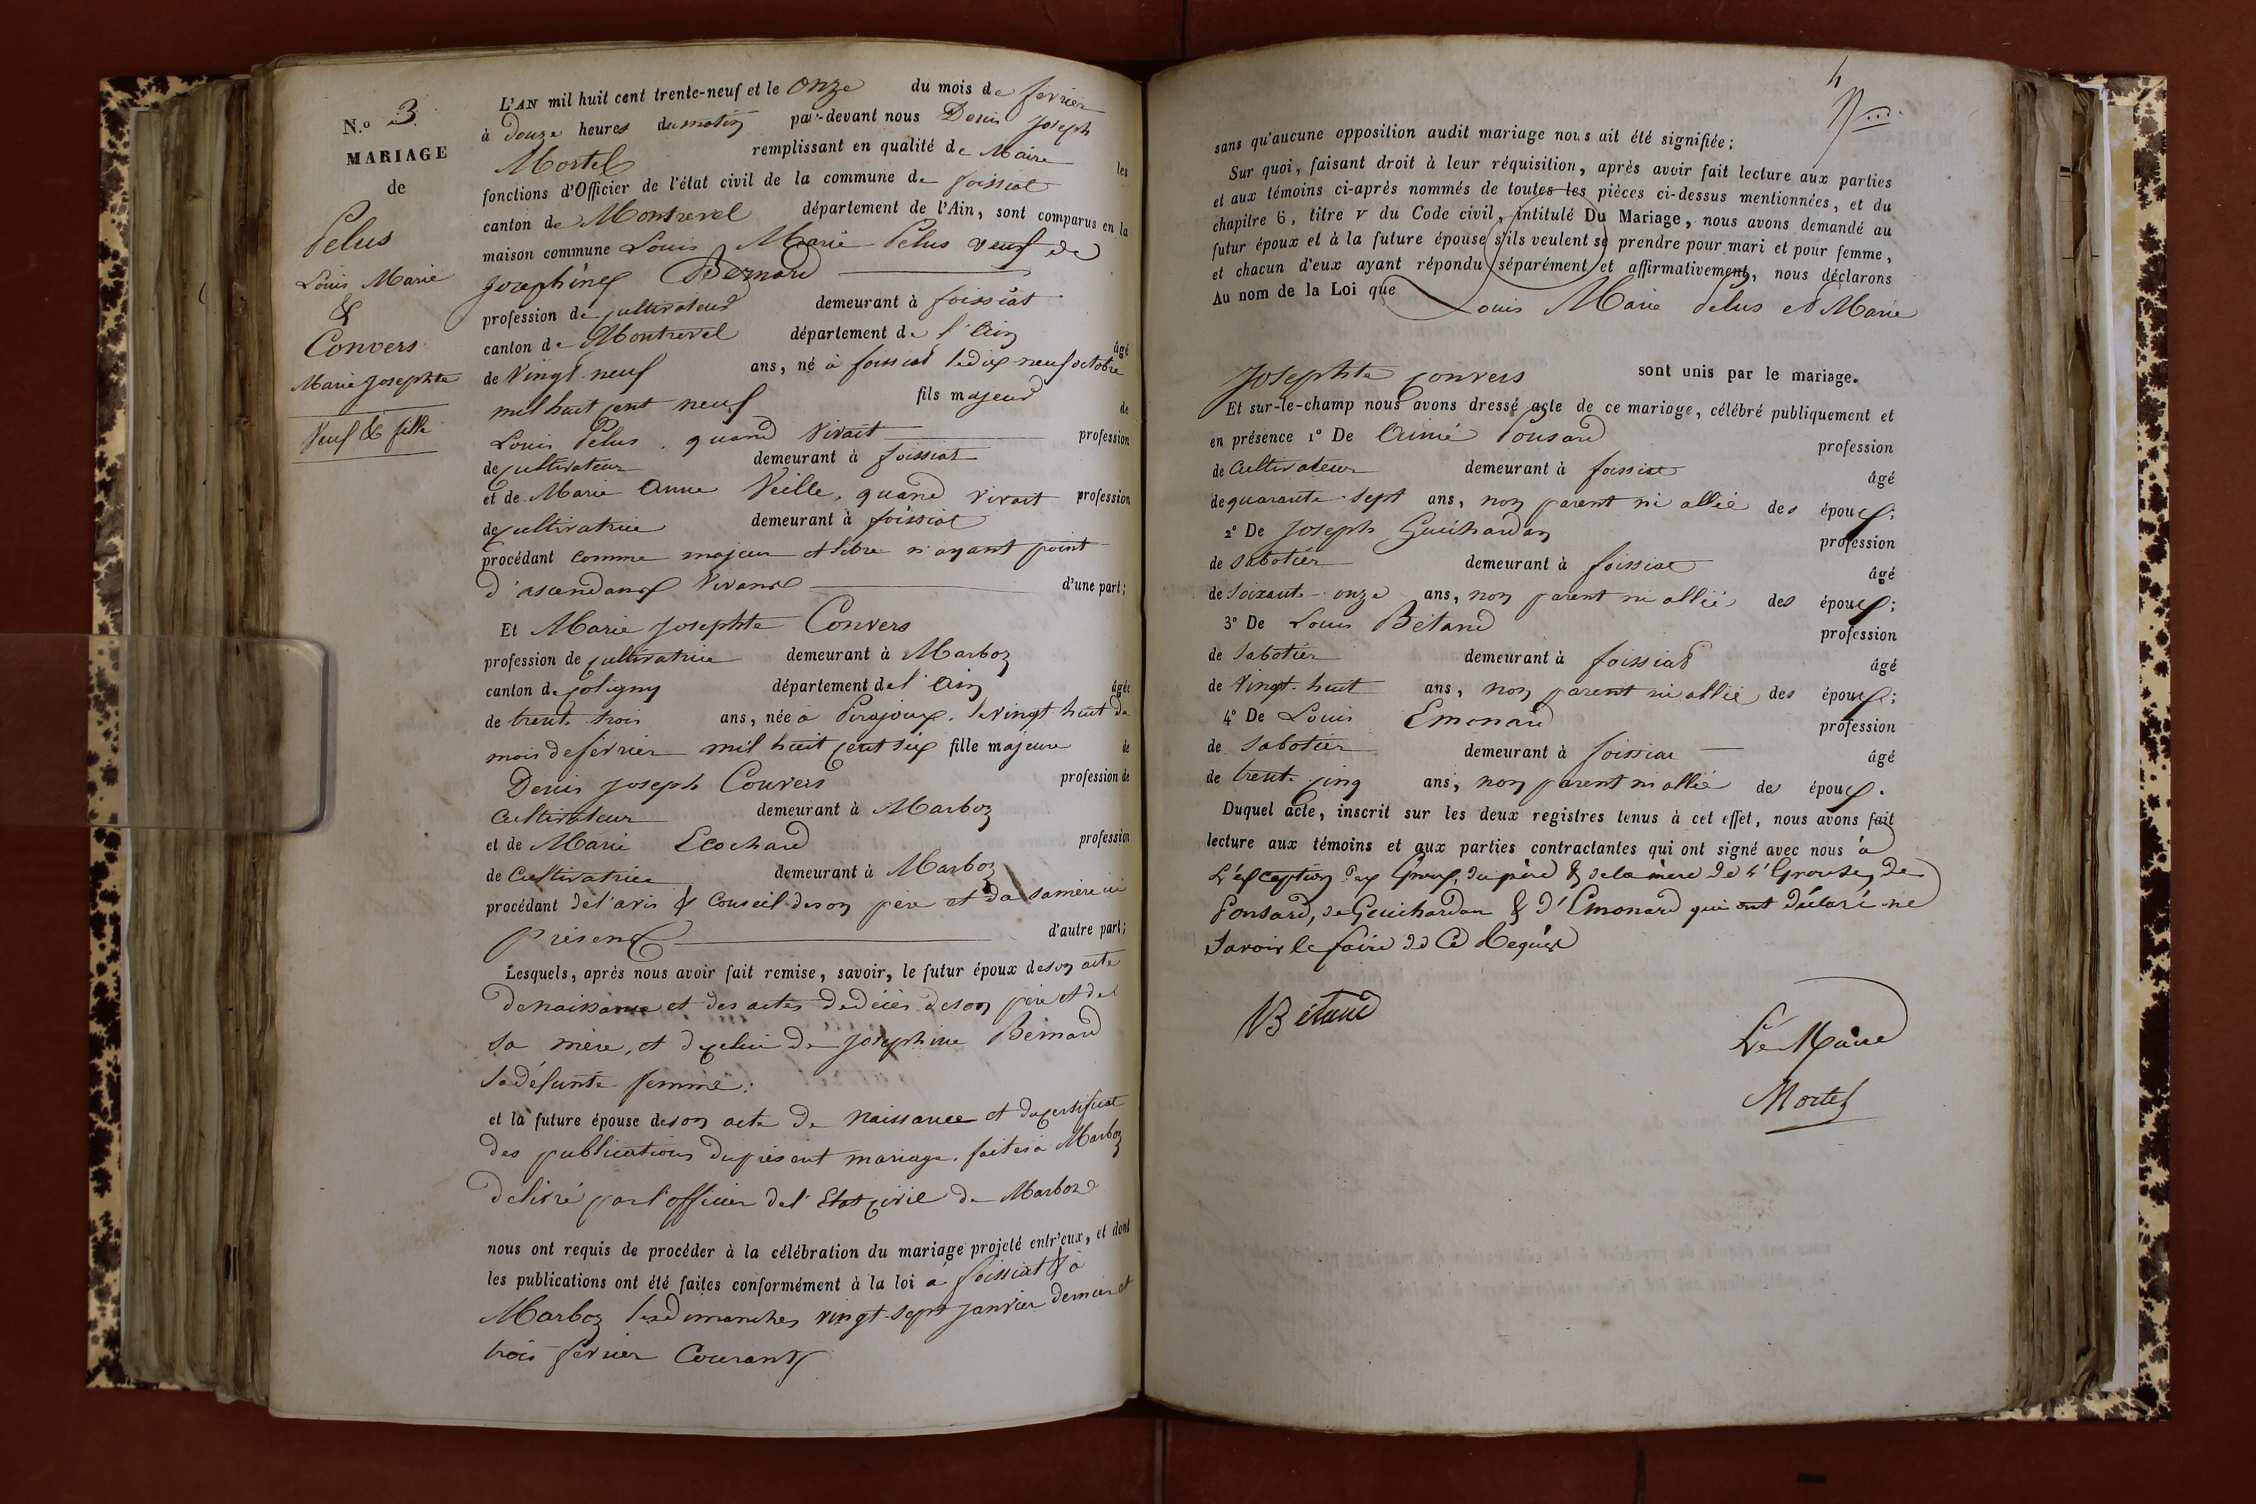 N.o 3.
MARIAGE
de
Pelus
Louis Marie
&
Convers
Marie Josephte
Veuf & fille
L'AN mil huit cent trente-neuf et le onze du mois de fevrier
à douze heures du matin par-devant nous Denis Joseph
Mortel remplissant en qualité de Maire les
fonctions d'Officier de l'état civil de la commune de foissiat
canton de Montrevel département de l'Ain, sont comparus en la
maison commune Louis Marie Pelus veuf de
Josephine Bernard
profession de cultivateur demeurant à foissiat
canton de Montrevel département de l'Ain âgé
de vingt-neuf ans, né à foissiat le dix neuf octobre
mil huit cent neuf fils majeur de
Louis Pelus, quand vivait profession
de cultivateur demeurant à foissiat
et de Marie Anne Veille, quand vivait profession
de cultivatrice demeurant à foissiat
procédant comme majeur et libre n'ayant point
d'ascendants vivants d'une part;
Et Marie Josephte Convers
profession de cultivatrice demeurant à Marboz
canton de Coligny département de l'Ain âgée
de trente trois ans, née à Pirajoux, le vingt huit du
mois de fevrier mil huit cent six fille majeure de
Denis Joseph Convers profession de
cultivateur demeurant à Marboz
et de Marie Ecochard profession
de Cultivatrice demeurant à Marboz
procédant de l'avis & conseil de son père et de sa mère ici
présents d'autre part;
Lesquels, après nous avoir fait remise, savoir, le futur époux de son acte
de naissance et des actes de décès de son père et de
sa mère, et de celui de Josephine Bernard
sa défunte femme;
et la future épouse de son acte de naissance et du certificat
des publications du présent mariage, faites à Marboz
délivré par l'officier de l'Etat civil de Marboz
nous ont requis de procéder à la célébration du mariage projeté entr'eux, et dont
les publications ont été faites conformément à la loi à foissiat & à
Marboz les dimanches vingt-sept janvier dernier et
trois fevrier courant
4
sans qu'aucune opposition audit mariage nous ait été signifiée;
Sur quoi, faisant droit à leur réquisition, après avoir fait lecture aux parties
et aux témoins ci-après nommés de toutes les pièces ci-dessus mentionnées, et du
chapitre 6, titre v du Code civil, intitulé Du Mariage, nous avons demandé au
futur époux et à la future épouse s'ils veulent se prendre pour mari et pour femme,
et chacun d'eux ayant répondu séparément et affirmativement, nous déclarons
Au nom de la Loi que Louis Marie Pelus et Marie
Josephte Convers sont unis par le mariage.
Et sur-le-champ nous avons dressé acte de ce mariage, célébré publiquement et
en présence 1° De Aimé Ponsard profession
de Cultivateur demeurant à foissiat âgé
de quarante-sept ans, non parent ni allié des époux;
2° De Joseph Guichardan profession
de sabotier demeurant à foissiat âgé
de soixante-onze ans, non parent ni allié des époux;
3° De Louis Bétand profession
de sabotier demeurant à foissiat âgé
de vingt-huit ans, non parent ni allié des époux;
4° De Louis Emonard profession
de sabotier demeurant à foissiat âgé
de trente-cinq ans, non parent ni allié des époux.
Duquel acte, inscrit sur les deux registres tenus à cet effet, nous avons fait
lecture aux témoins et aux parties contractantes qui ont signé avec nous à
L'exception des Epoux, du père & de la mère de l'Epouse, de
Ponsard, de Guichardan & d'Emonard qui ont déclaré ne
savoir le faire de ce Requis
Bétand
Le Maire
Mortel